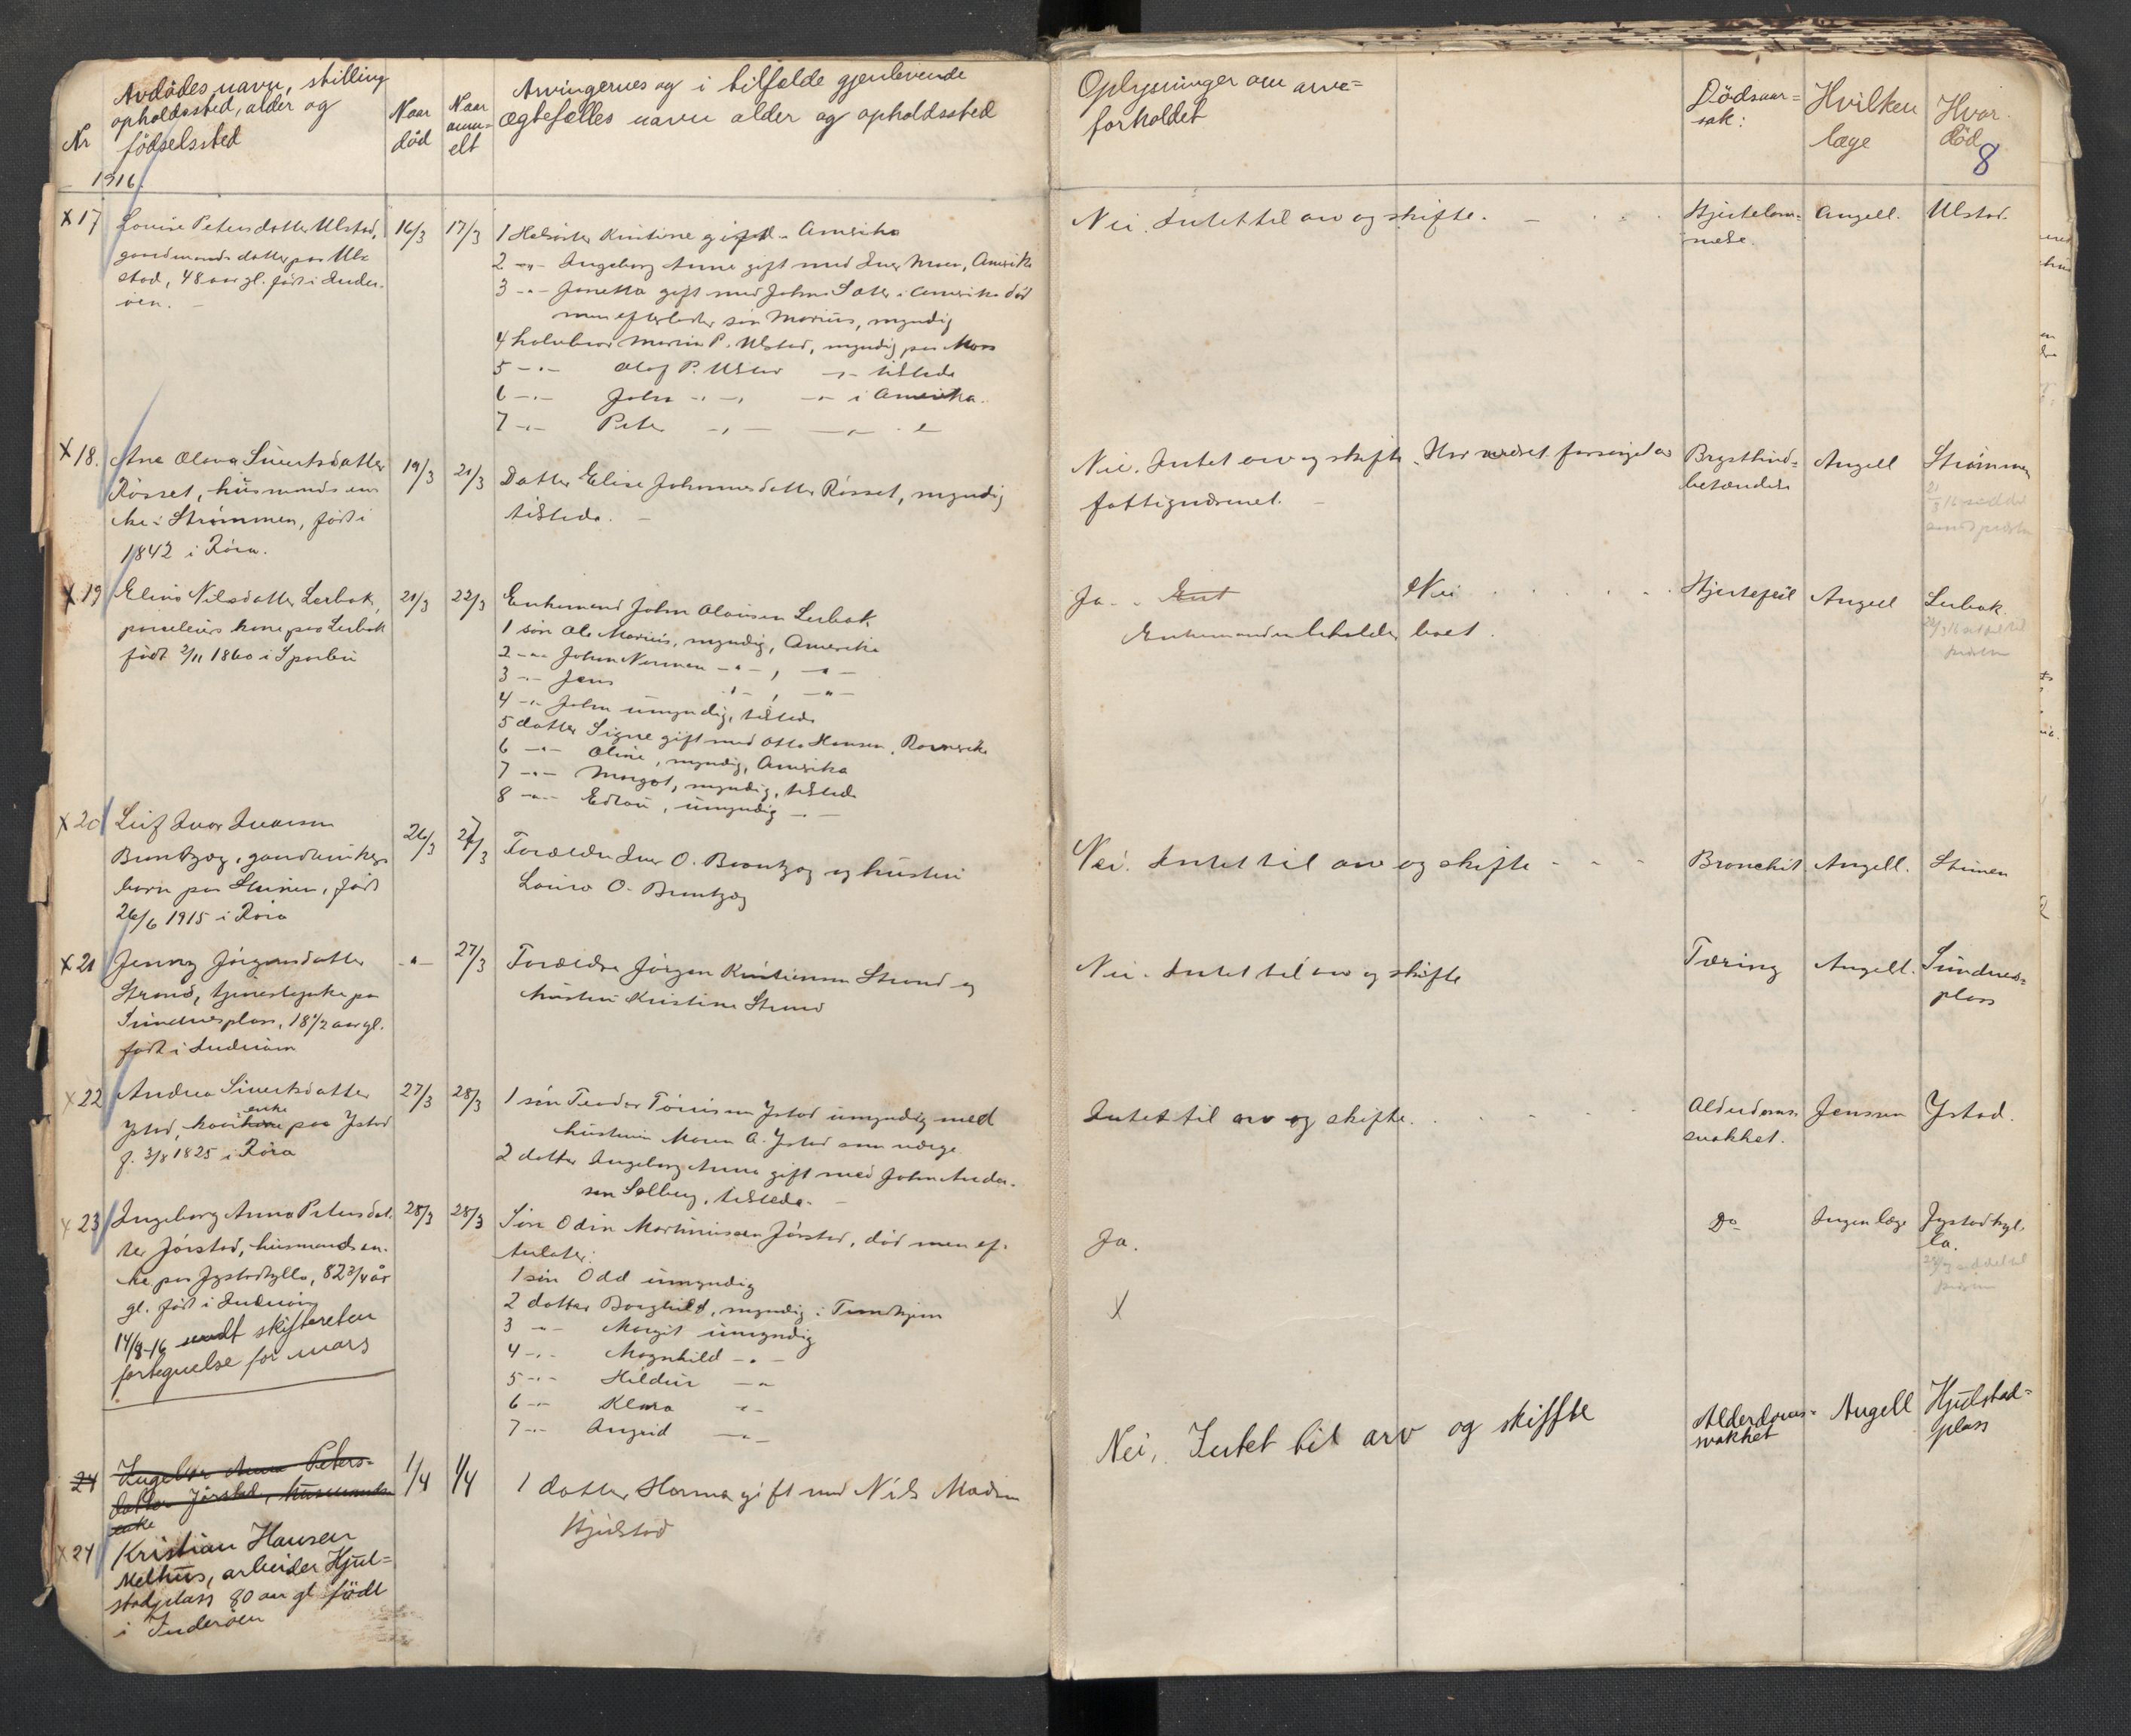 Nr
Avdödes navn, stilling
opholdssted, alder og
födselssted
Naar
död
Naar
anm-
elt
Arvingernes og i tilfælde gjenlevende
ægtefælles navn alder og opholdssted
Oplysninger om arve=
forholdet
Dödsaar=
sak:
Hvilken
læge
Hvor
död
8
1916.
x 17
Louise Petersdatter Ulstad,
gaardmands datter paa Ul-
stad, 48 aar gl. født i Inder-
öen. -
16/3
17/3
1 Halsøster Kristine gift - Amerika
2 -"- Ingeborg Anna gift med Iver Moen, Amerika
3 -"- Janetta gift med John Sater i Amerika død
men efterlater søn Marius, myndig
4 halvbror Marius P. Ulstad, myndig paa Moss
5 -"- Olaf P. Ulstad -"- tilstede
6 -"- John -"- -"- i Amerika.
7 -"- Peter -"- -"-
Nei. Intet til arv og skifte. -
Hjertelam-
melse.
Angell.
Ulstad.
x 18.
Ane Olava Sivertsdatter
Røsset, husmands en-
ke i Strømmen, født i
1842 i Røra.
19/3
21/3
Datter Elise Johannesdatter Røsset, myndig
tilstede. -
Nei. Intet arv og skifte. Har været forsørget av
fattigvæsenet. -
Brysthind=
betændelse
Angell
Strømmen
x 19
Elina Nilsdatter Lerbak,
parcelleiers kone paa Lerbak
født 2/11 1860 i Sparbu
21/3
22/3
Enkemand John Olausen Lerbak
1 søn Ole Marius, myndig, Amerika
2 -"- Johan Norman -"- , -"-
3 -"- Jens -"- , -"-
4 -"- John umyndig, tilstede
5 datter Signe gift med Otto Hansen,
6 -"- Oline, myndig, Amerika
7 -"- Margot, myndig, tilstede
8 -"- , umyndig -"-
Ja. - Ent Nei
Enkemanden beholder boet.
Hjertefeil
Angell
Lerbak.
x 20
Leif Ivar Iversen
Buntzog, gaardbrukers
barn paa Steinen, født
26/6 1915 i Røra
26/3
27/3
Forældre Iver O. Buntzog og hustru
Louise O. Buntzog
Nei. Intet til arv og skifte - - -
Bronchit
Angell.
Steinen
x 21
Jenny Jørgensdatter
Strand, tjenestepike paa
Sundnesplass, 18 1/2 aar gl.
født i Inderøen
-"-
27/3
Forældre Jørgen Kristiansen Strand og
hustru Kristine Strand
Nei. Intet til arv og skifte
Tæring
Angell.
Sundnes=
plass
x 22
Andrea Sivertsdatter
enke
Ystad, kaarkone paa Ystad
f. 3/8 1825 i Røra
27/3
28/3
1 søn Teodor Tønsesen Ystad umyndig med
hustruen Maren A. Ystad som værge.
2 datter Ingeborg Anna gift med John Ander-
sen Solberg, tilstede. -
Intet til arv og skifte.
Alderdoms-
svakhet.
Jenssen
Ystad.
x 23
Ingeborg Anna Petersdat-
ter Jørstad, husmands en-
ke paa Jystadhylla, 82 3/4 år
gl. født i Inderøen
14/8-16 sendt skifteretten
fortegnelse for mars
28/3
28/3
Søn Odin Martinussen Jørstad, død men ef-
terlater:
1 søn Odd umyndig
2 datter Borghild, myndig i Trondhjem
3 -"- Margit umyndig
4 -"- Magnhild -"-
5 -"- Hildur -"-
6 -"- Klara -"-
7 -"- Ingrid -"-
Ja.
X
Do
Ingen læge
Jystadhyl-
la.
24
Ingeborg Anna Peters-
datter Jörstad, husmands
enke
x 24
Kristian Hansen
Melhus, arbeider Hjul=
stadplass 80 aar gl födt
i Inderöen
1/4
1/4
1 datter Hanna gift med Nils Madsen
Hjulstad
Nei, Intet til arv og skiffte
Alderdoms-
svakhet
Angell
Hjulstad=
plass